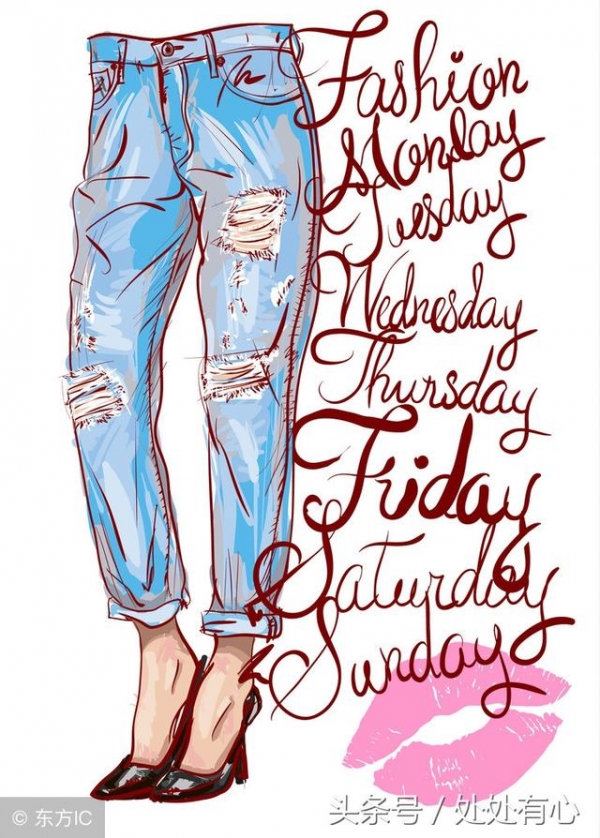 Fashion
Monday
Tuesday
Wednesday
Thursday
Friday
Saturday
Sunday
© 东方IC
头条号 / 处处有心